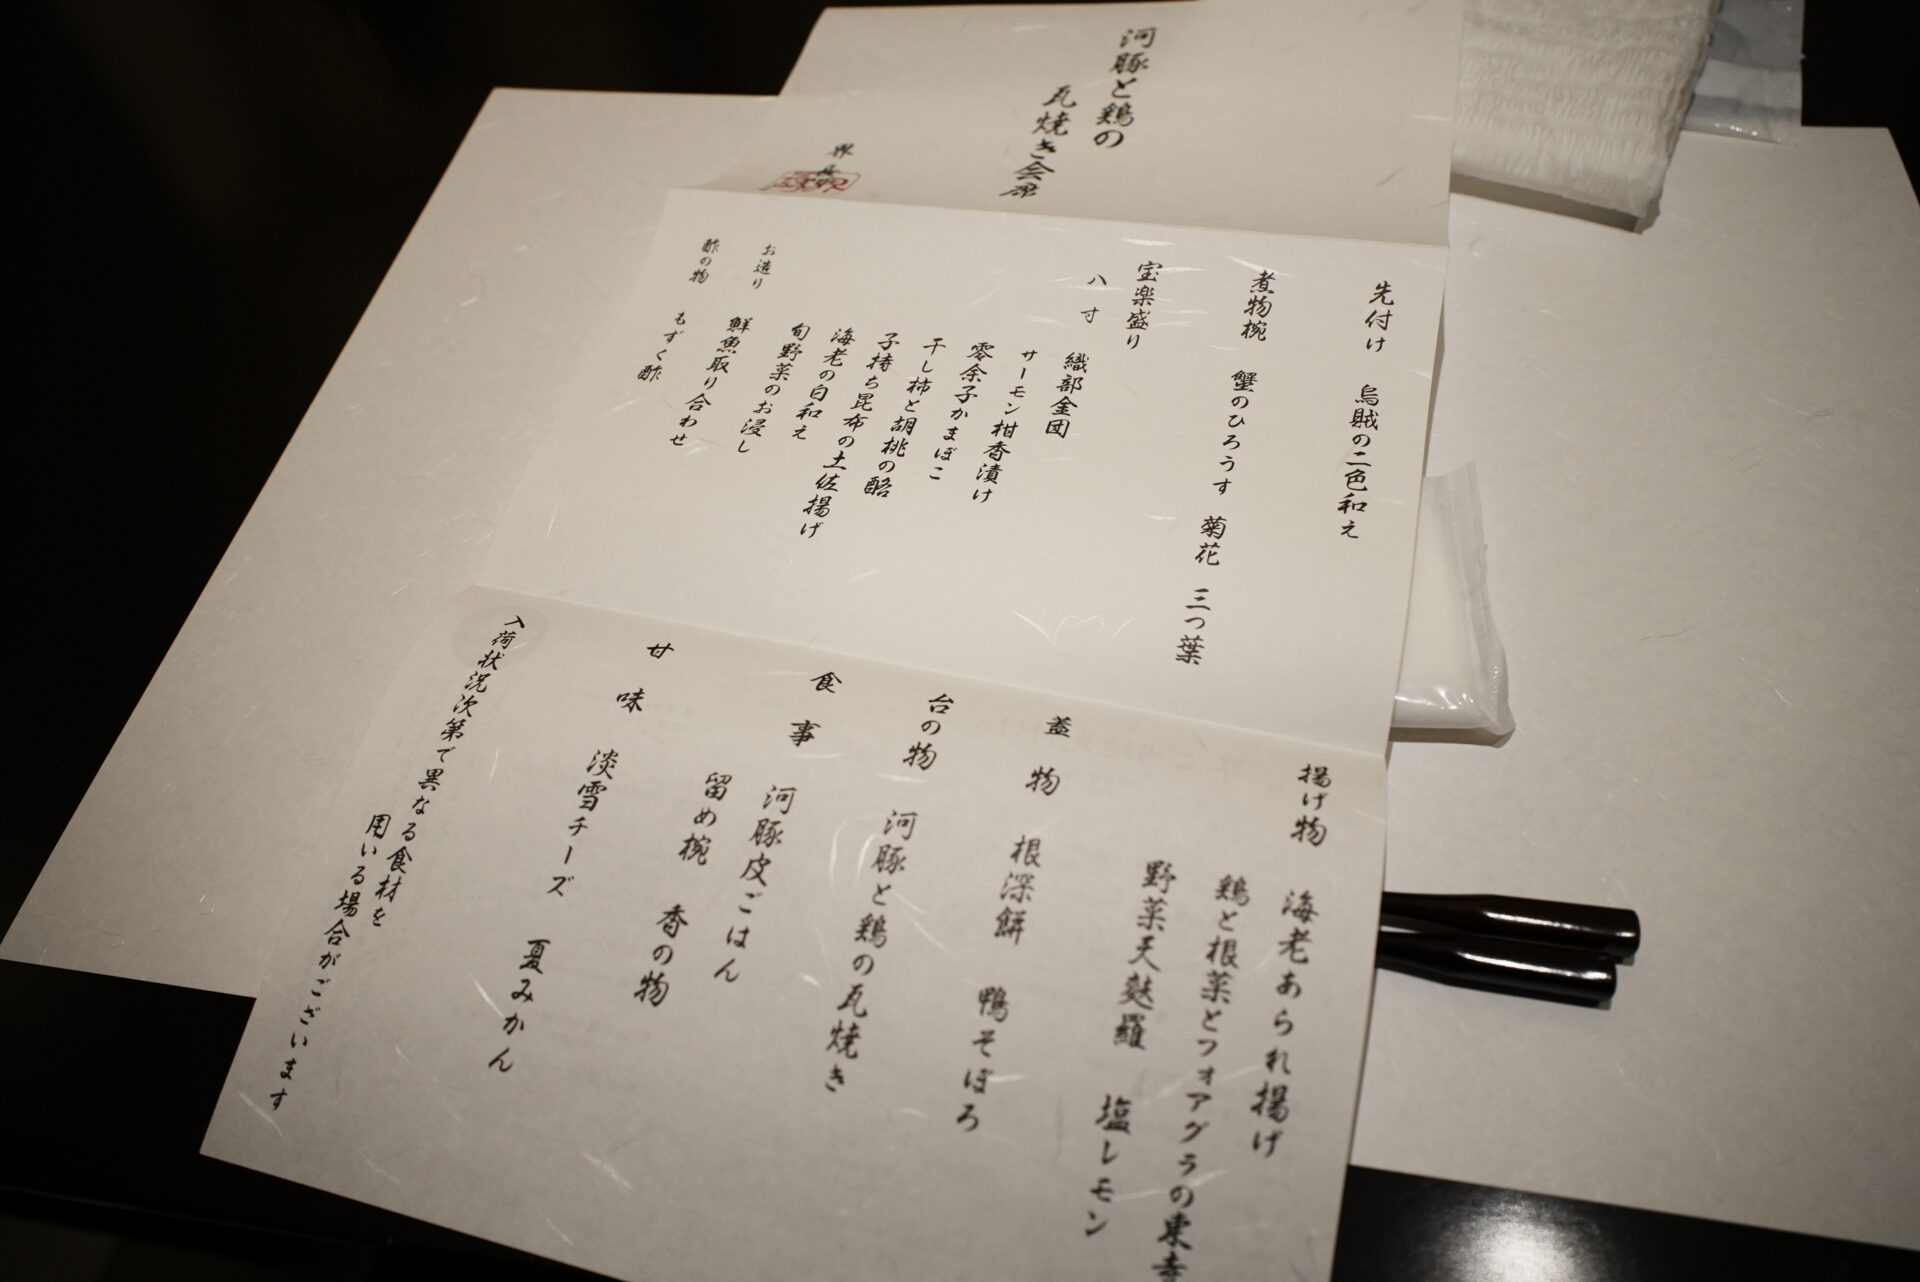 河豚と鶏の
瓦焼き会席
先付け 烏賊の二色和え
煮物椀 蟹のひろうす 菊花 三つ葉
宝楽盛り
八寸 織部金団
サーモン柑香漬け
零余子かまぼこ
干し柿と胡桃の酪
子持ち昆布の土佐揚げ
海老の白和え
旬野菜のお浸し
お造り 鮮魚取り合わせ
酢の物 もずく酢
揚げ物 海老あられ揚げ
鶏と根菜とフォアグラの東寺
野菜天麩羅 塩レモン
蓋物 根深餅 鴨そぼろ
台の物 河豚と鶏の瓦焼き
食事 河豚皮ごはん
留め椀 香の物
甘味 淡雪チーズ 夏みかん
入荷状況次第で異なる食材を
用いる場合がございます